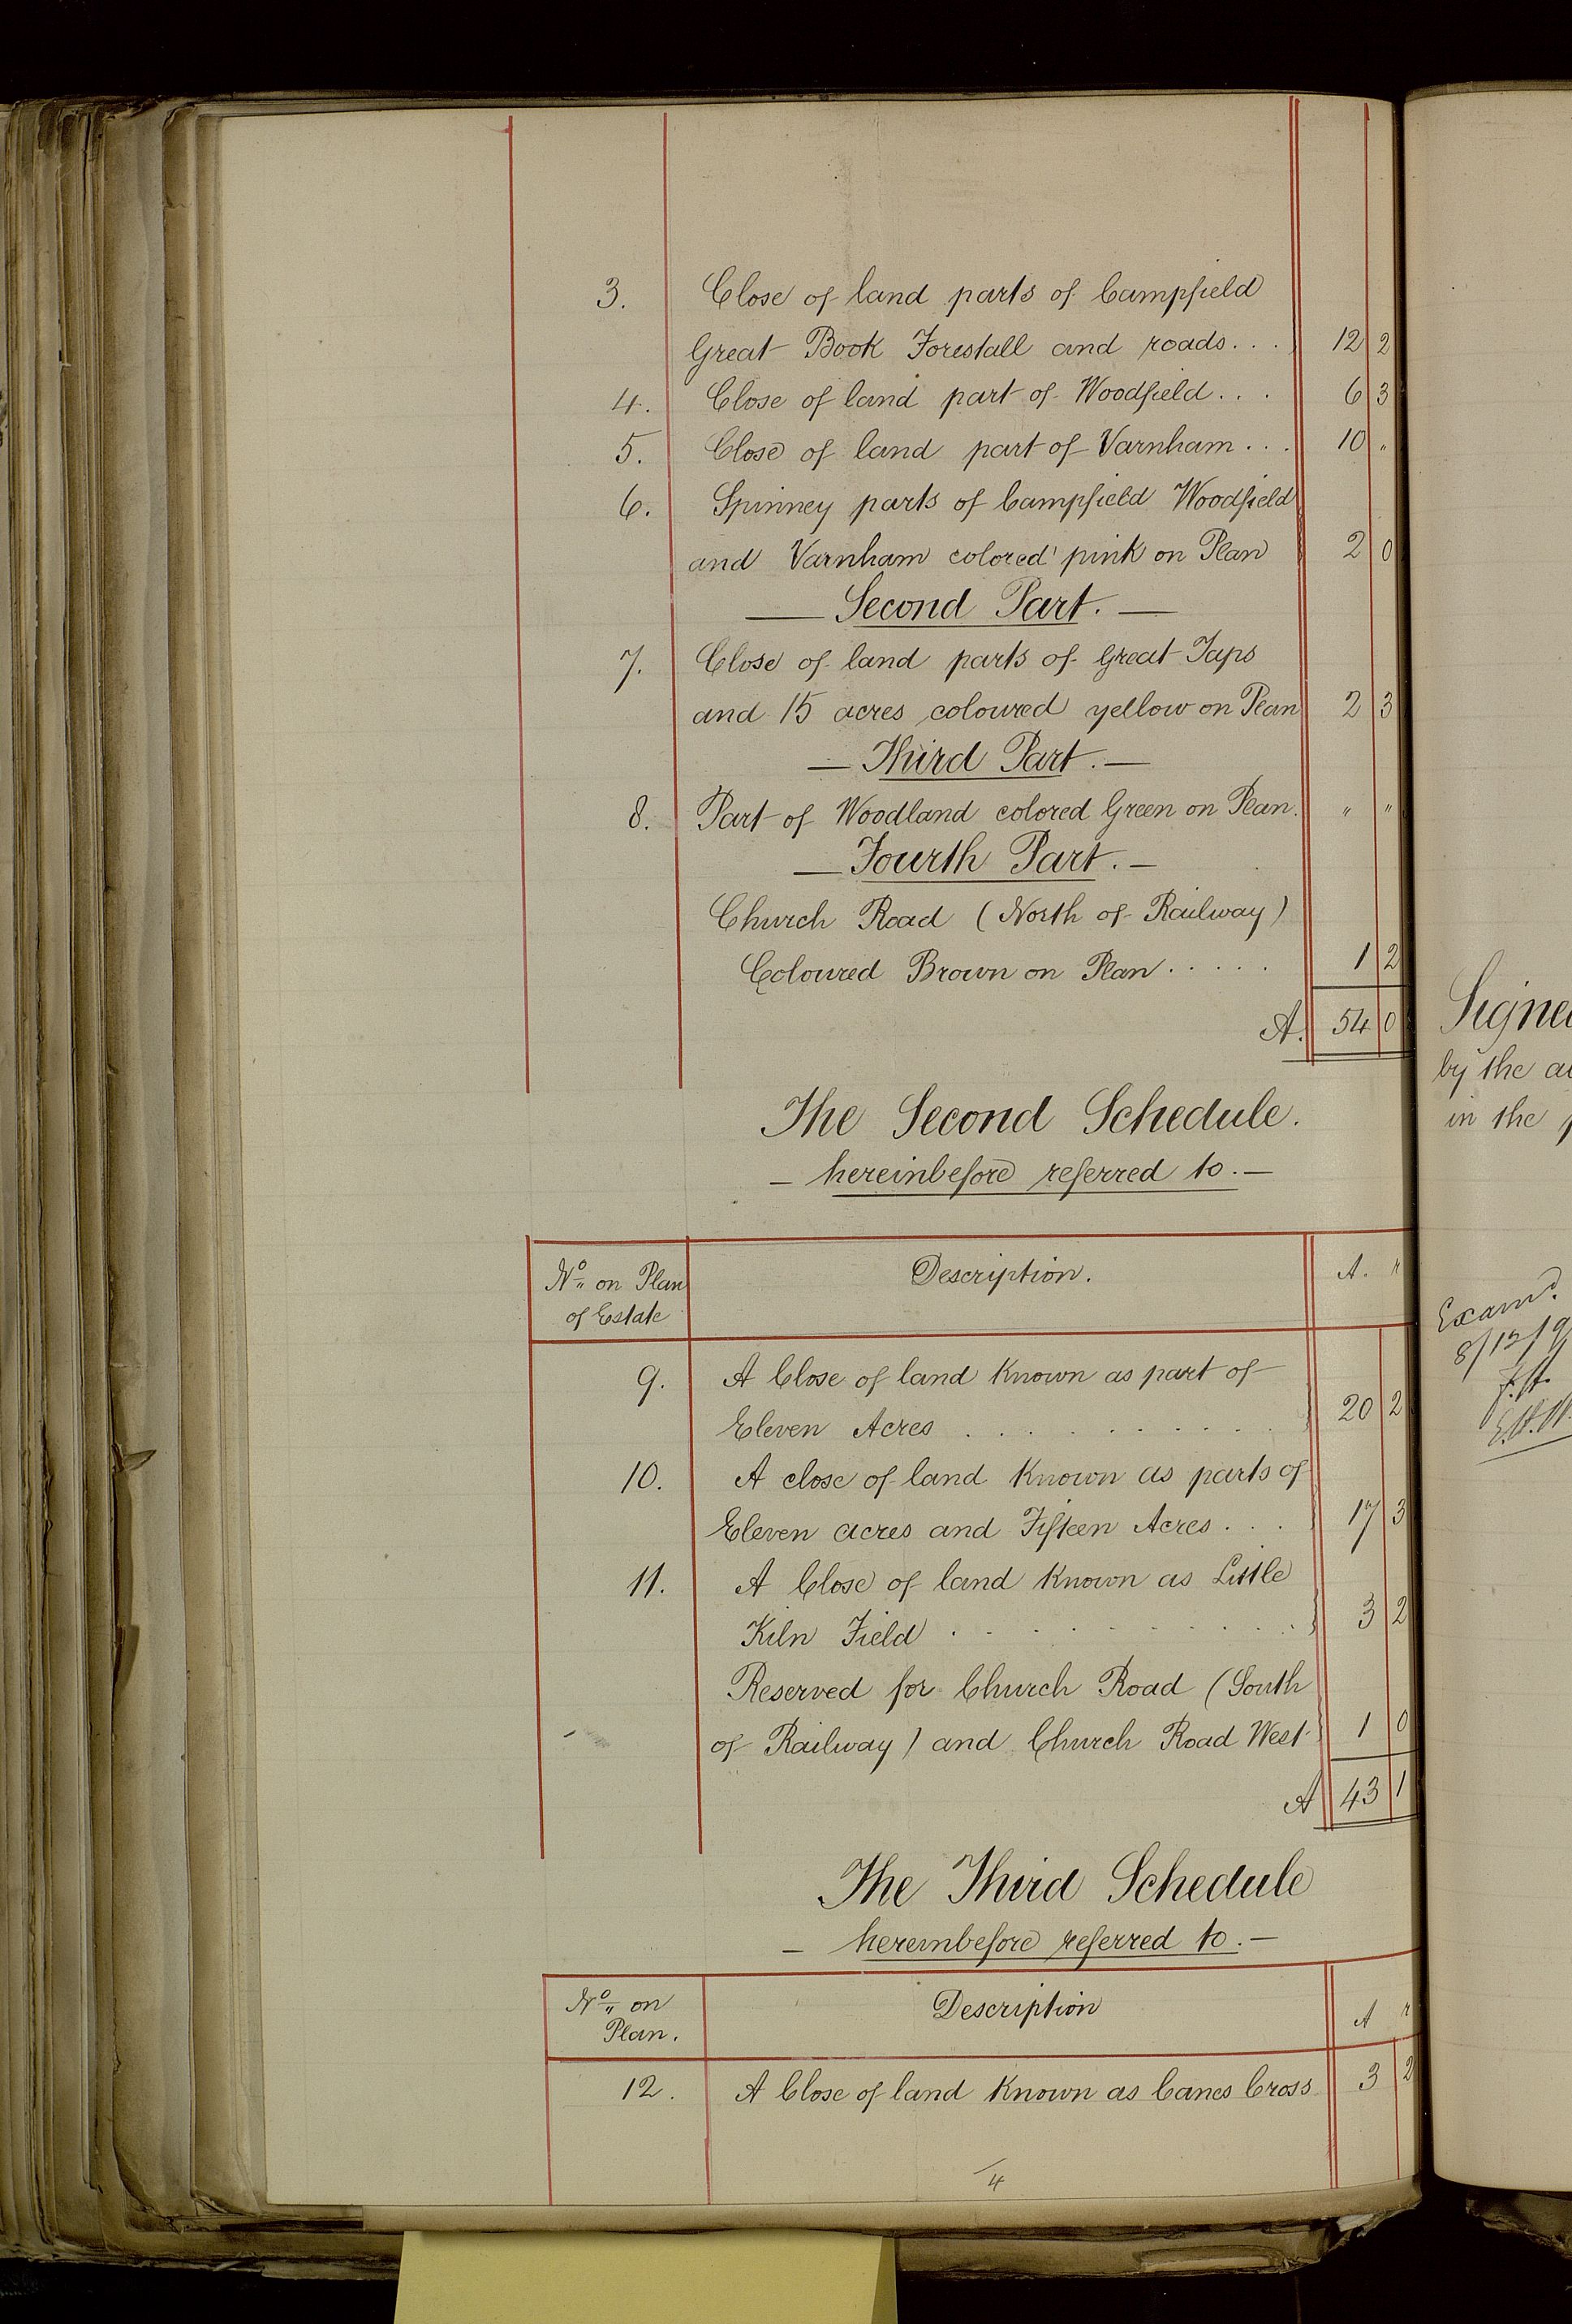 3. Close of land parts of Campfield
Great Book Forestall and roads . . . 12 2
4. Close of land part of Woodfield . . . 6 3
5. Close of land part of Varnham . . . 10 "
6. Spinney parts of Campfield Woodfield
and Varnham colored pink on Plan 2 0
— Second Part. —
7. Close of land parts of Great Taps
and 15 acres coloured yellow on Plan 2 3
— Third Part. —
8. Part of Woodland colored Green on Plan. " "
— Fourth Part. —
Church Road (North of Railway)
Coloured Brown on Plan . . . . . 1 2
A. 54 0
The Second Schedule.
— hereinbefore referred to. —
No. on Plan
of Estate
Description.
A. r
9. A Close of land known as part of
Eleven Acres . . . . . . . . . 20 2
10. A close of land known as parts of
Eleven acres and Fifteen Acres . . . 17 3
11. A Close of land known as Little
Kiln Field . . . . . . . . . 3 2
Reserved for Church Road (South
of Railway) and Church Road West 1 0
A 43 1
The Third Schedule
— hereinbefore referred to. —
No. on
Plan.
Description
A r
12. A Close of land known as Canes Cross 3 2
4
Signe
by the
in the
Examd.
8/12/9